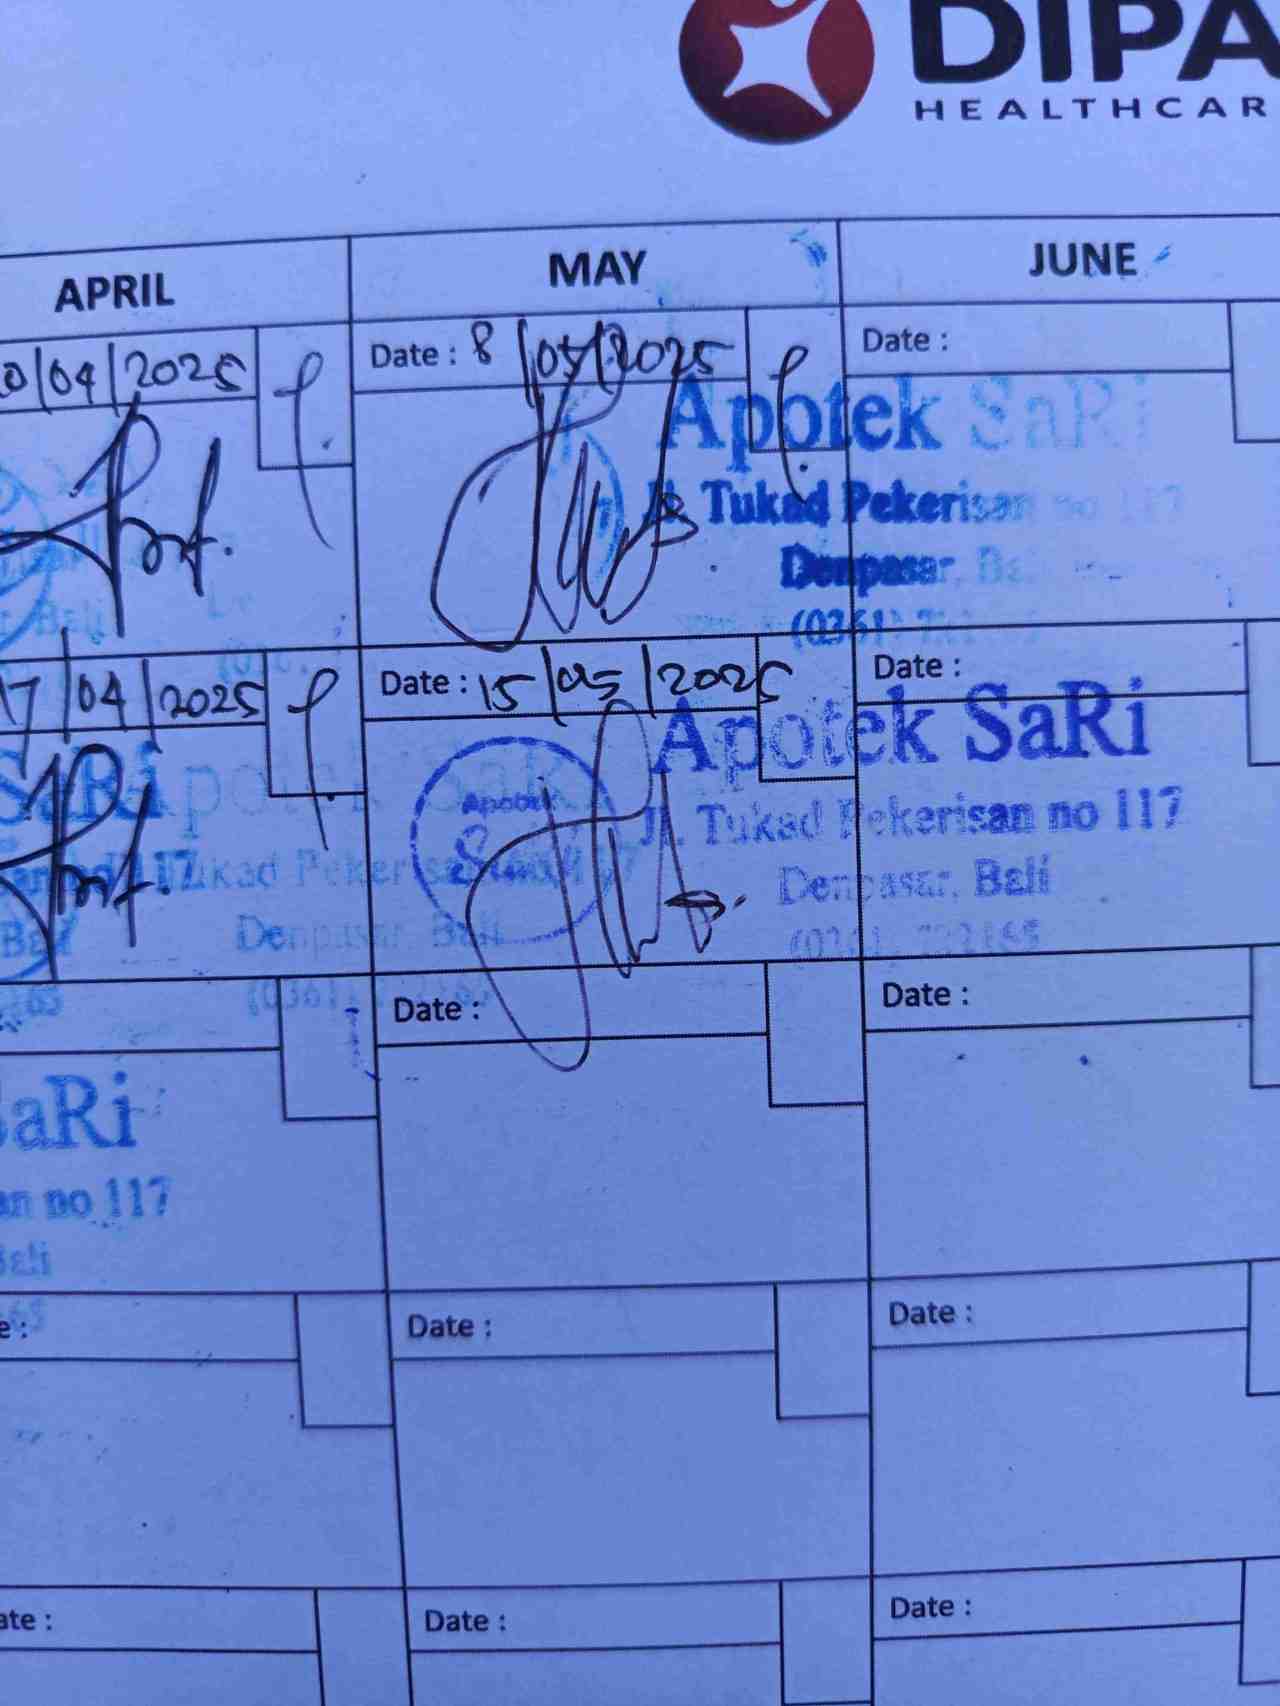 DIPA
HEALTHCAR
APRIL MAY JUNE
0/04/2025 Date : 8/05/2025 Date :
Apotek SaRi
Jl. Tukad Pekerisan no 117
Denpasar, Bali
(0361)
17/04/2025 Date : 15/05/2025 Date :
SaRi Apotek SaRi
Apotek
Jl. Tukad Pekerisan no 117
117 Tukad Pekerisan no 117
Denpasar, Bali
Bali Denpasar, Bali
(0361)
Date : Date :
SaRi
an no 117
Bali
65
e : Date : Date :
ate : Date : Date :